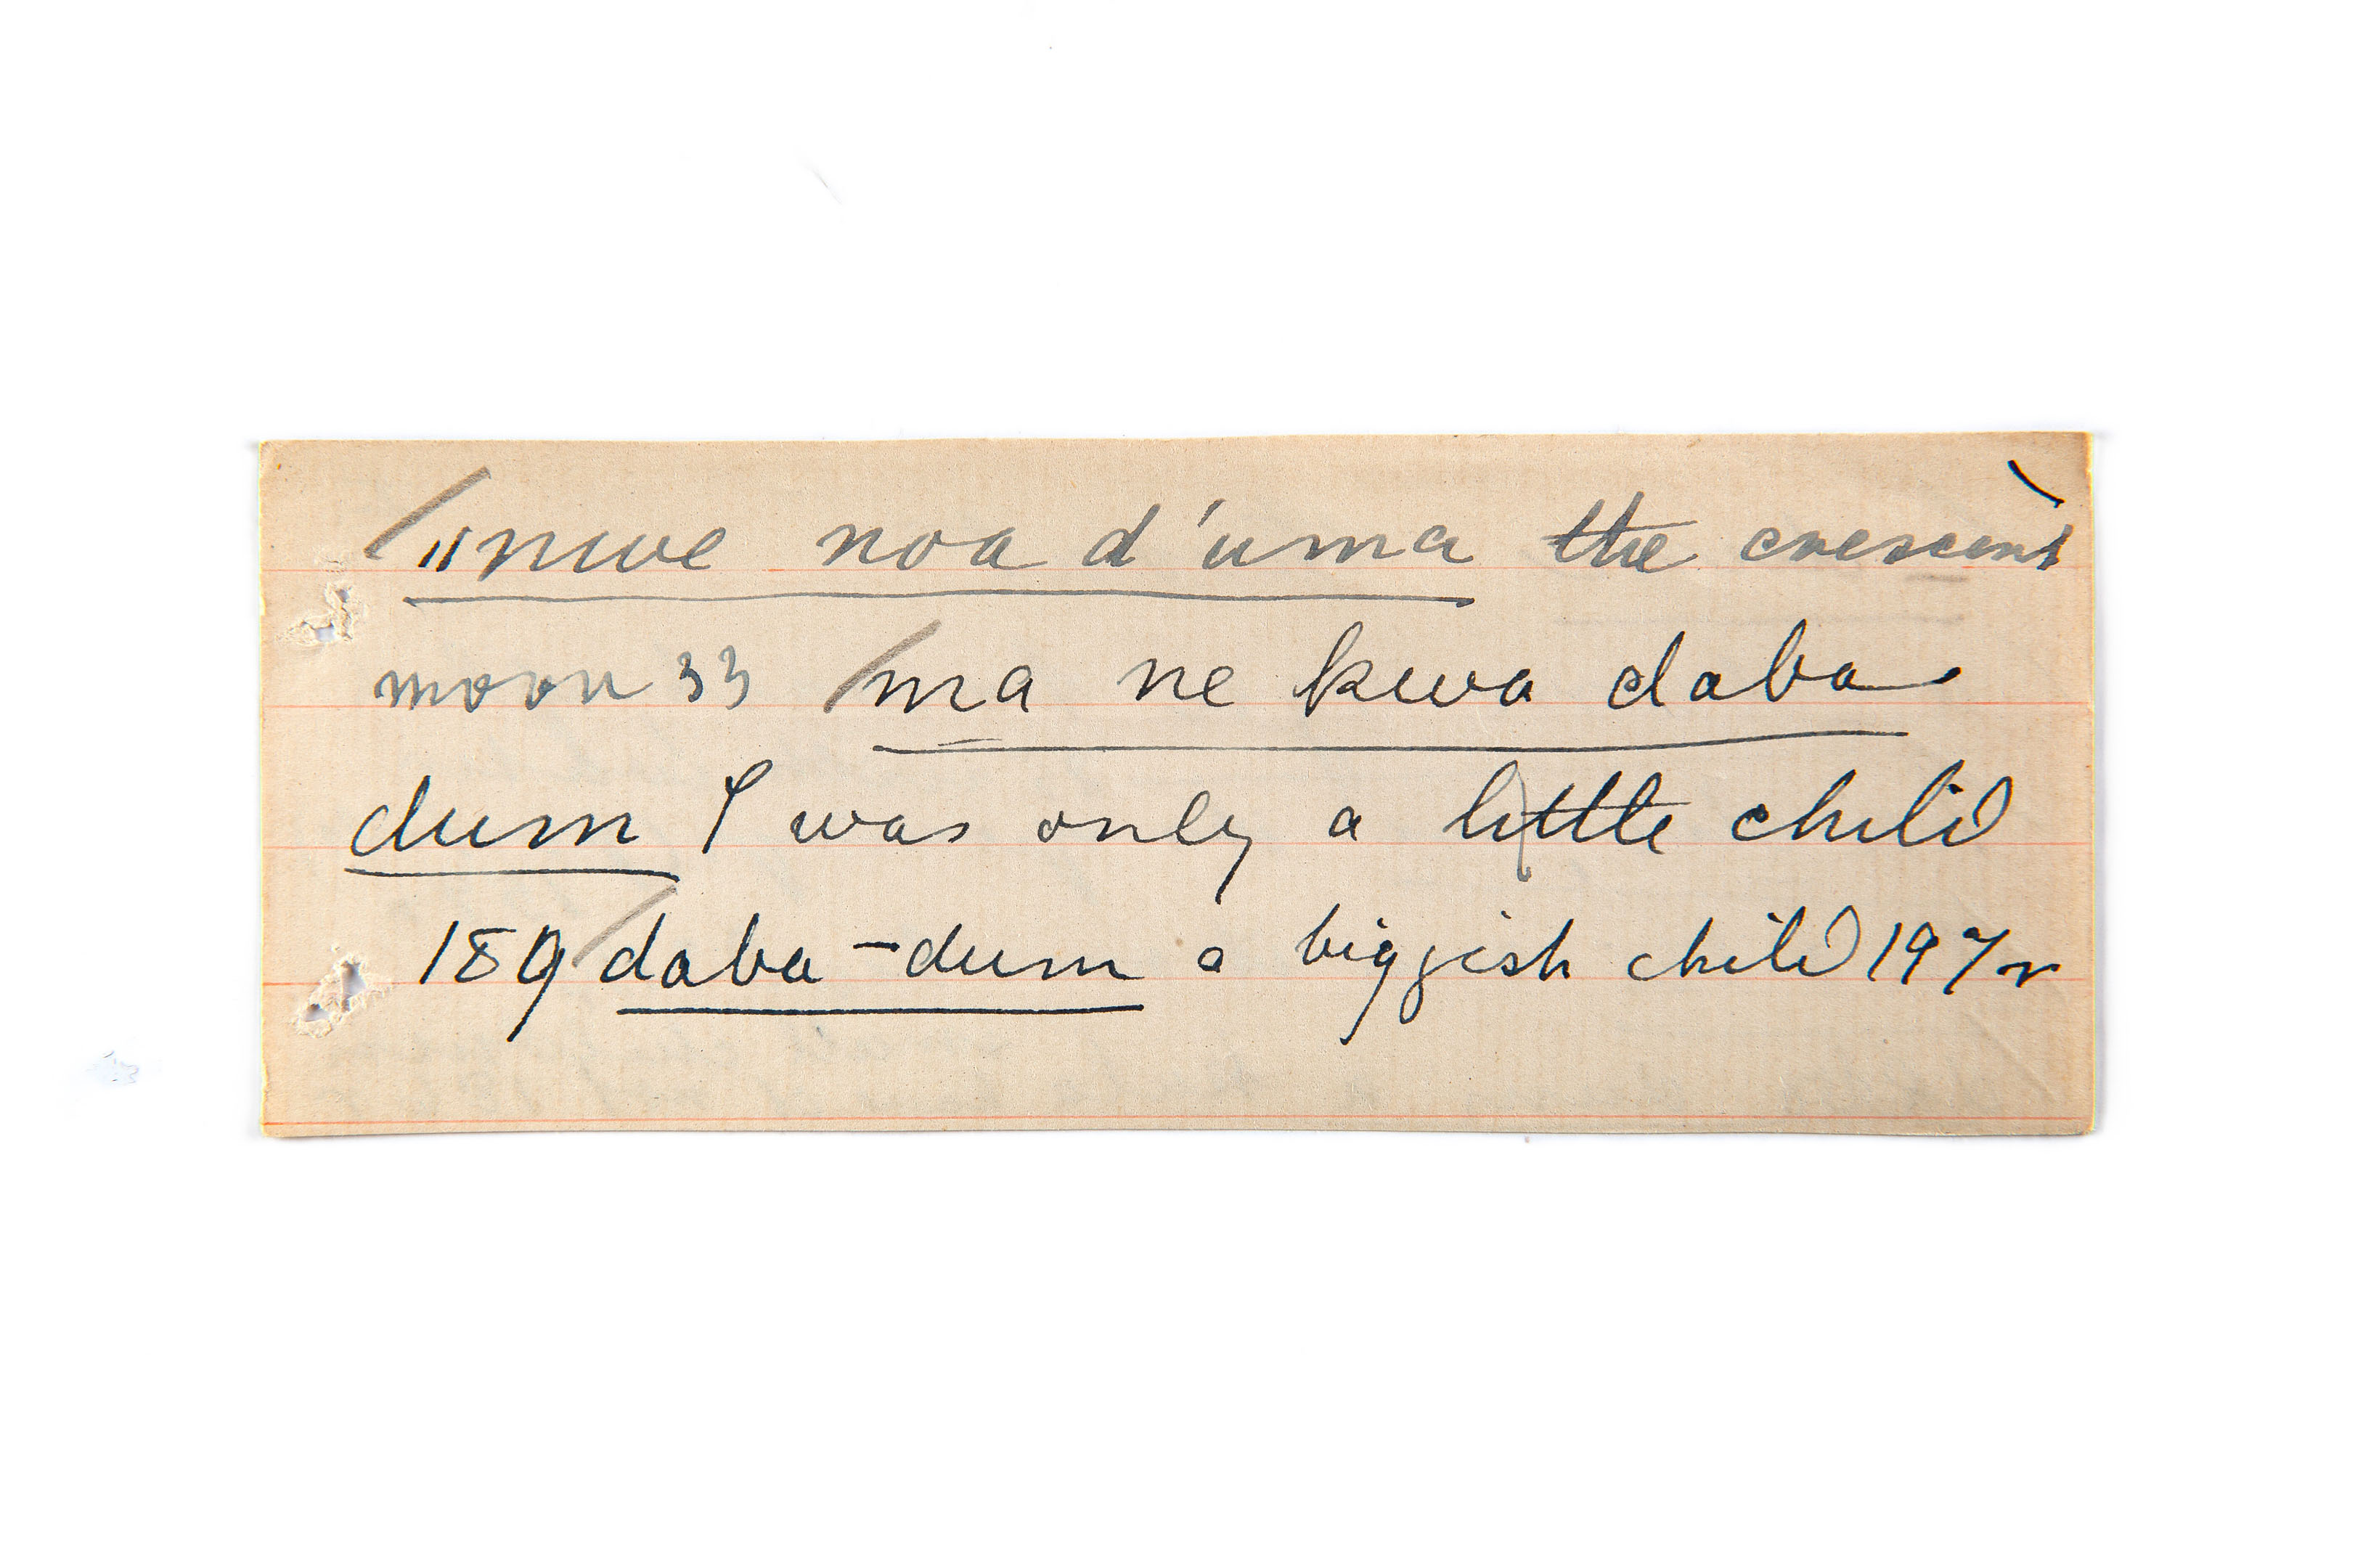 /ǁnwe noa d'uma the crescent
moon 33 /ma ne kwa daba
dum I was only a little child
189 /daba-dum a biggish child 197r